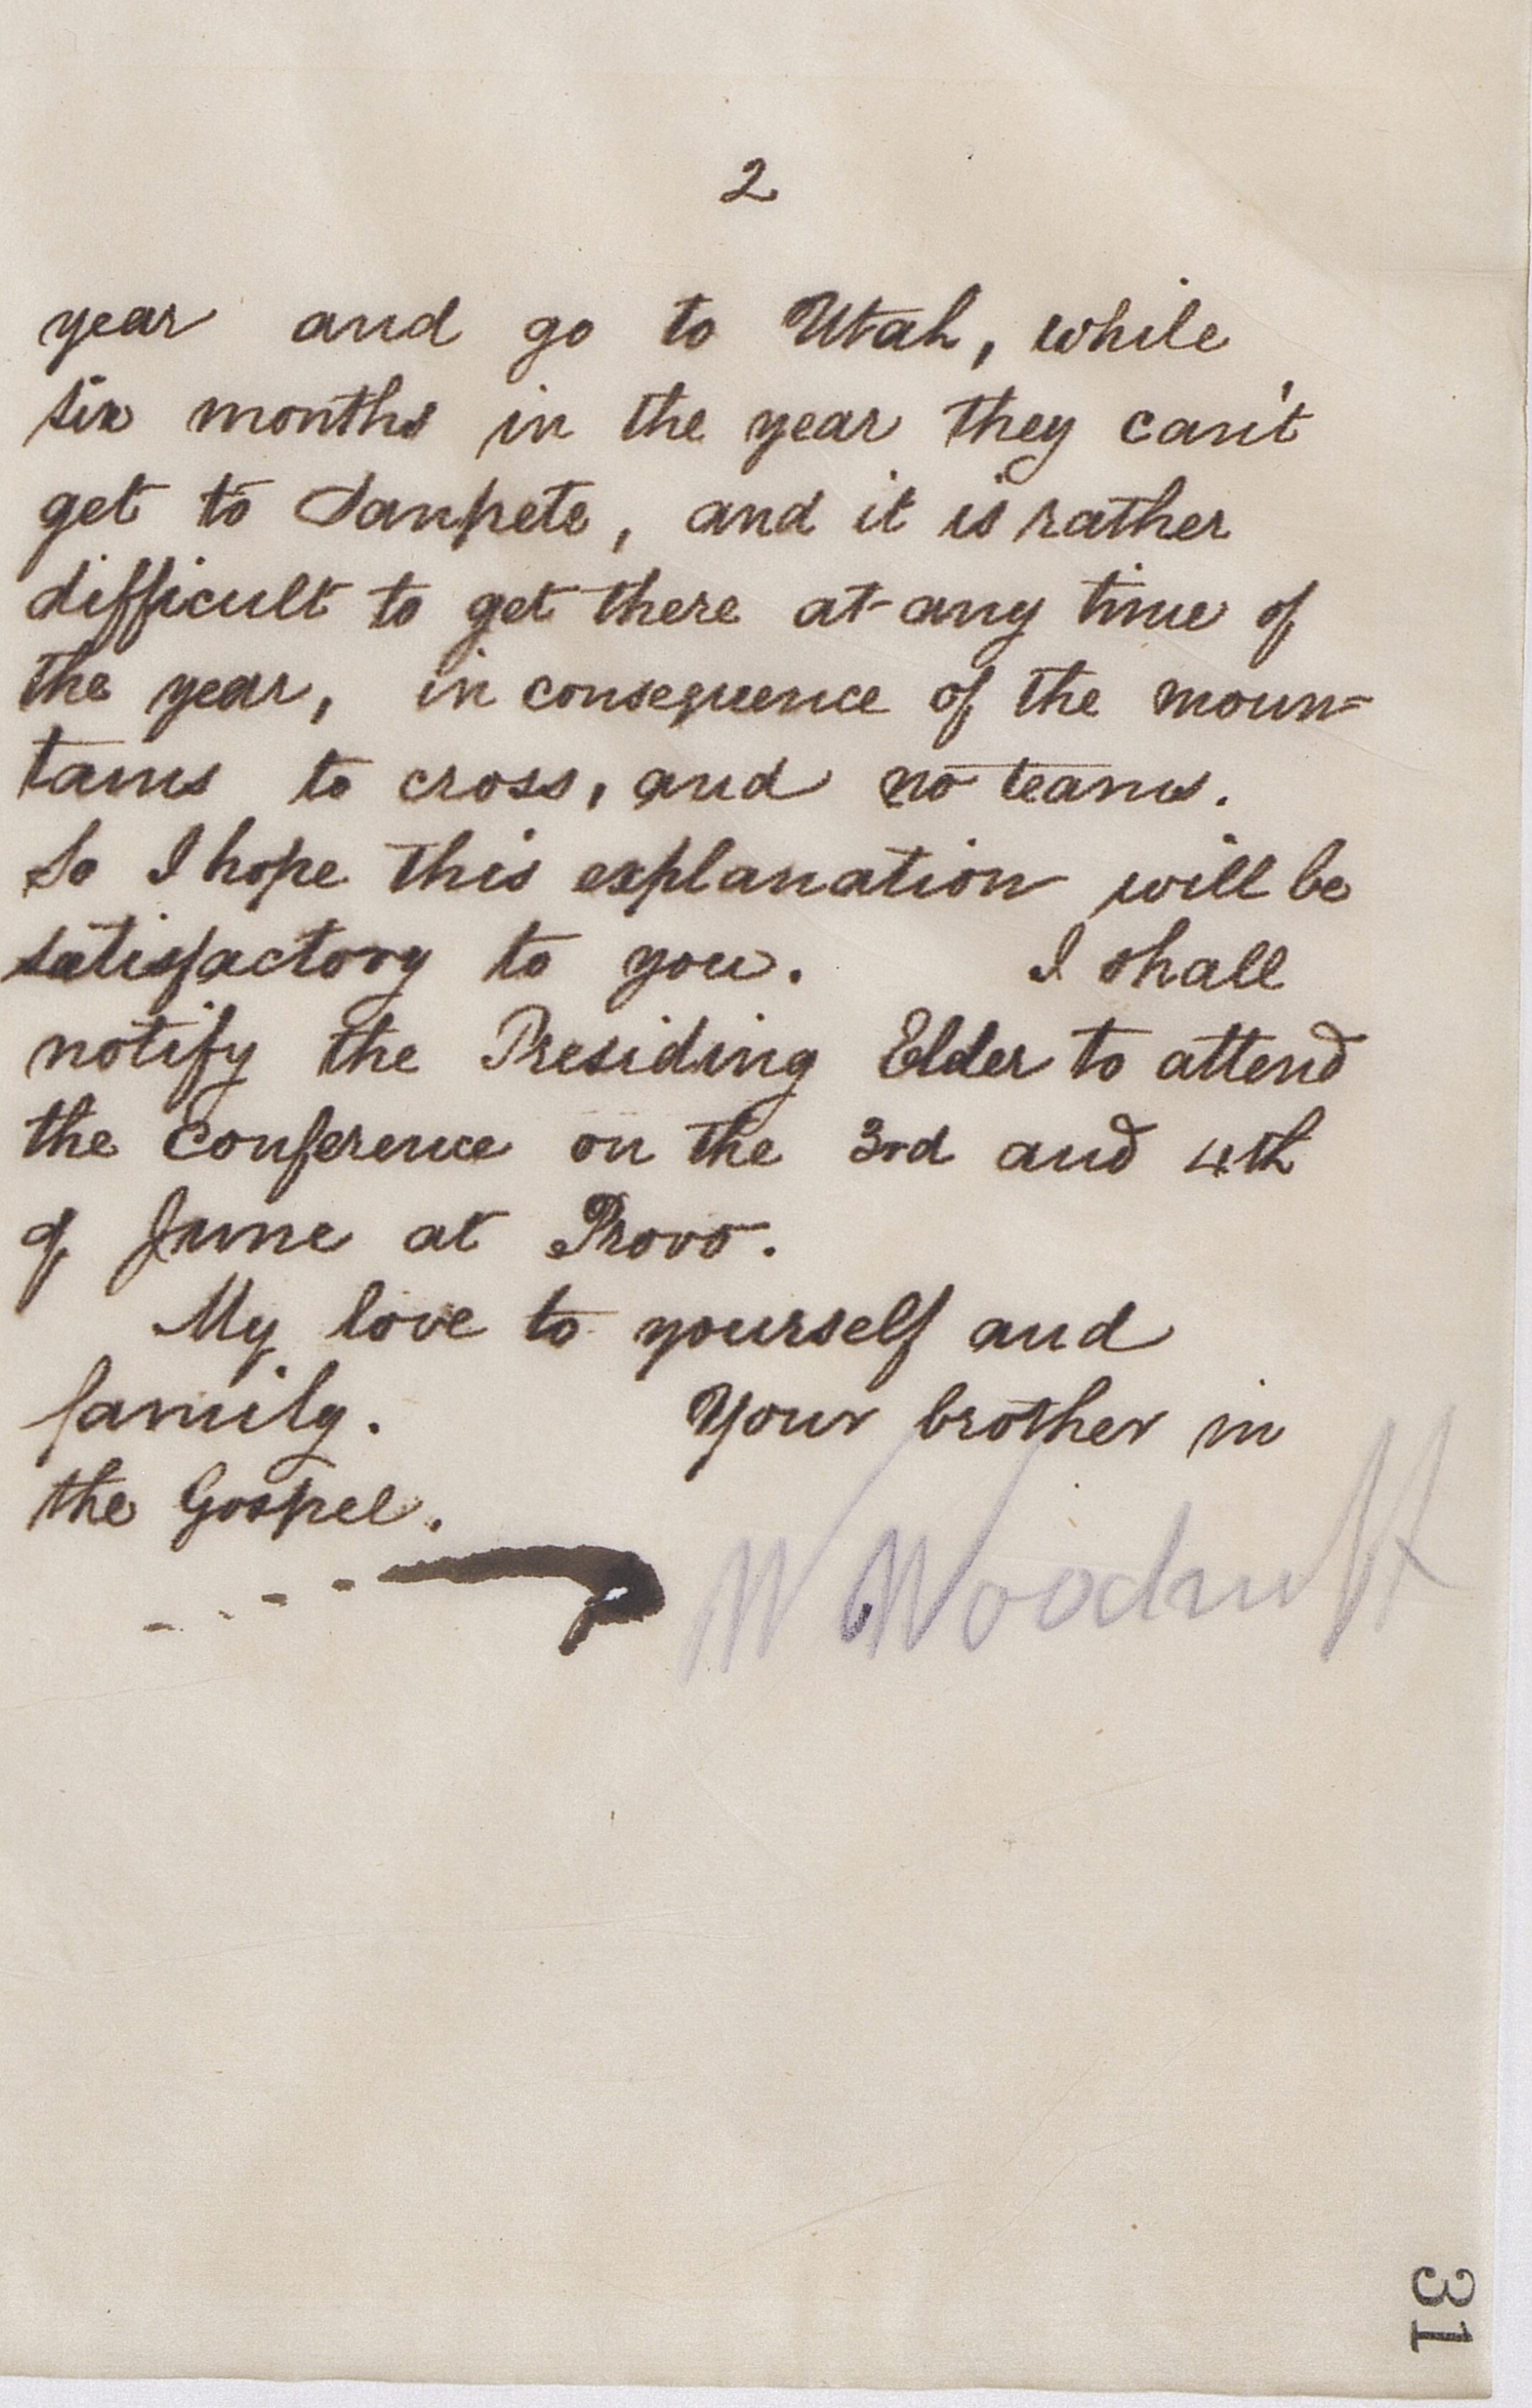 2
year and go to Utah, while
six months in the year they can't
get to Sanpete, and it is rather
difficult to get there at any time of
the year, in consequence of the moun=
tains to cross, and no teams.
So I hope this explanation will be
satisfactory to you. I shall
notify the Presiding Elder to attend
the conference on the 3rd and 4th
of June at Provo.
My love to yourself and
family. Your brother in
the Gospel.
W Woodruff
31